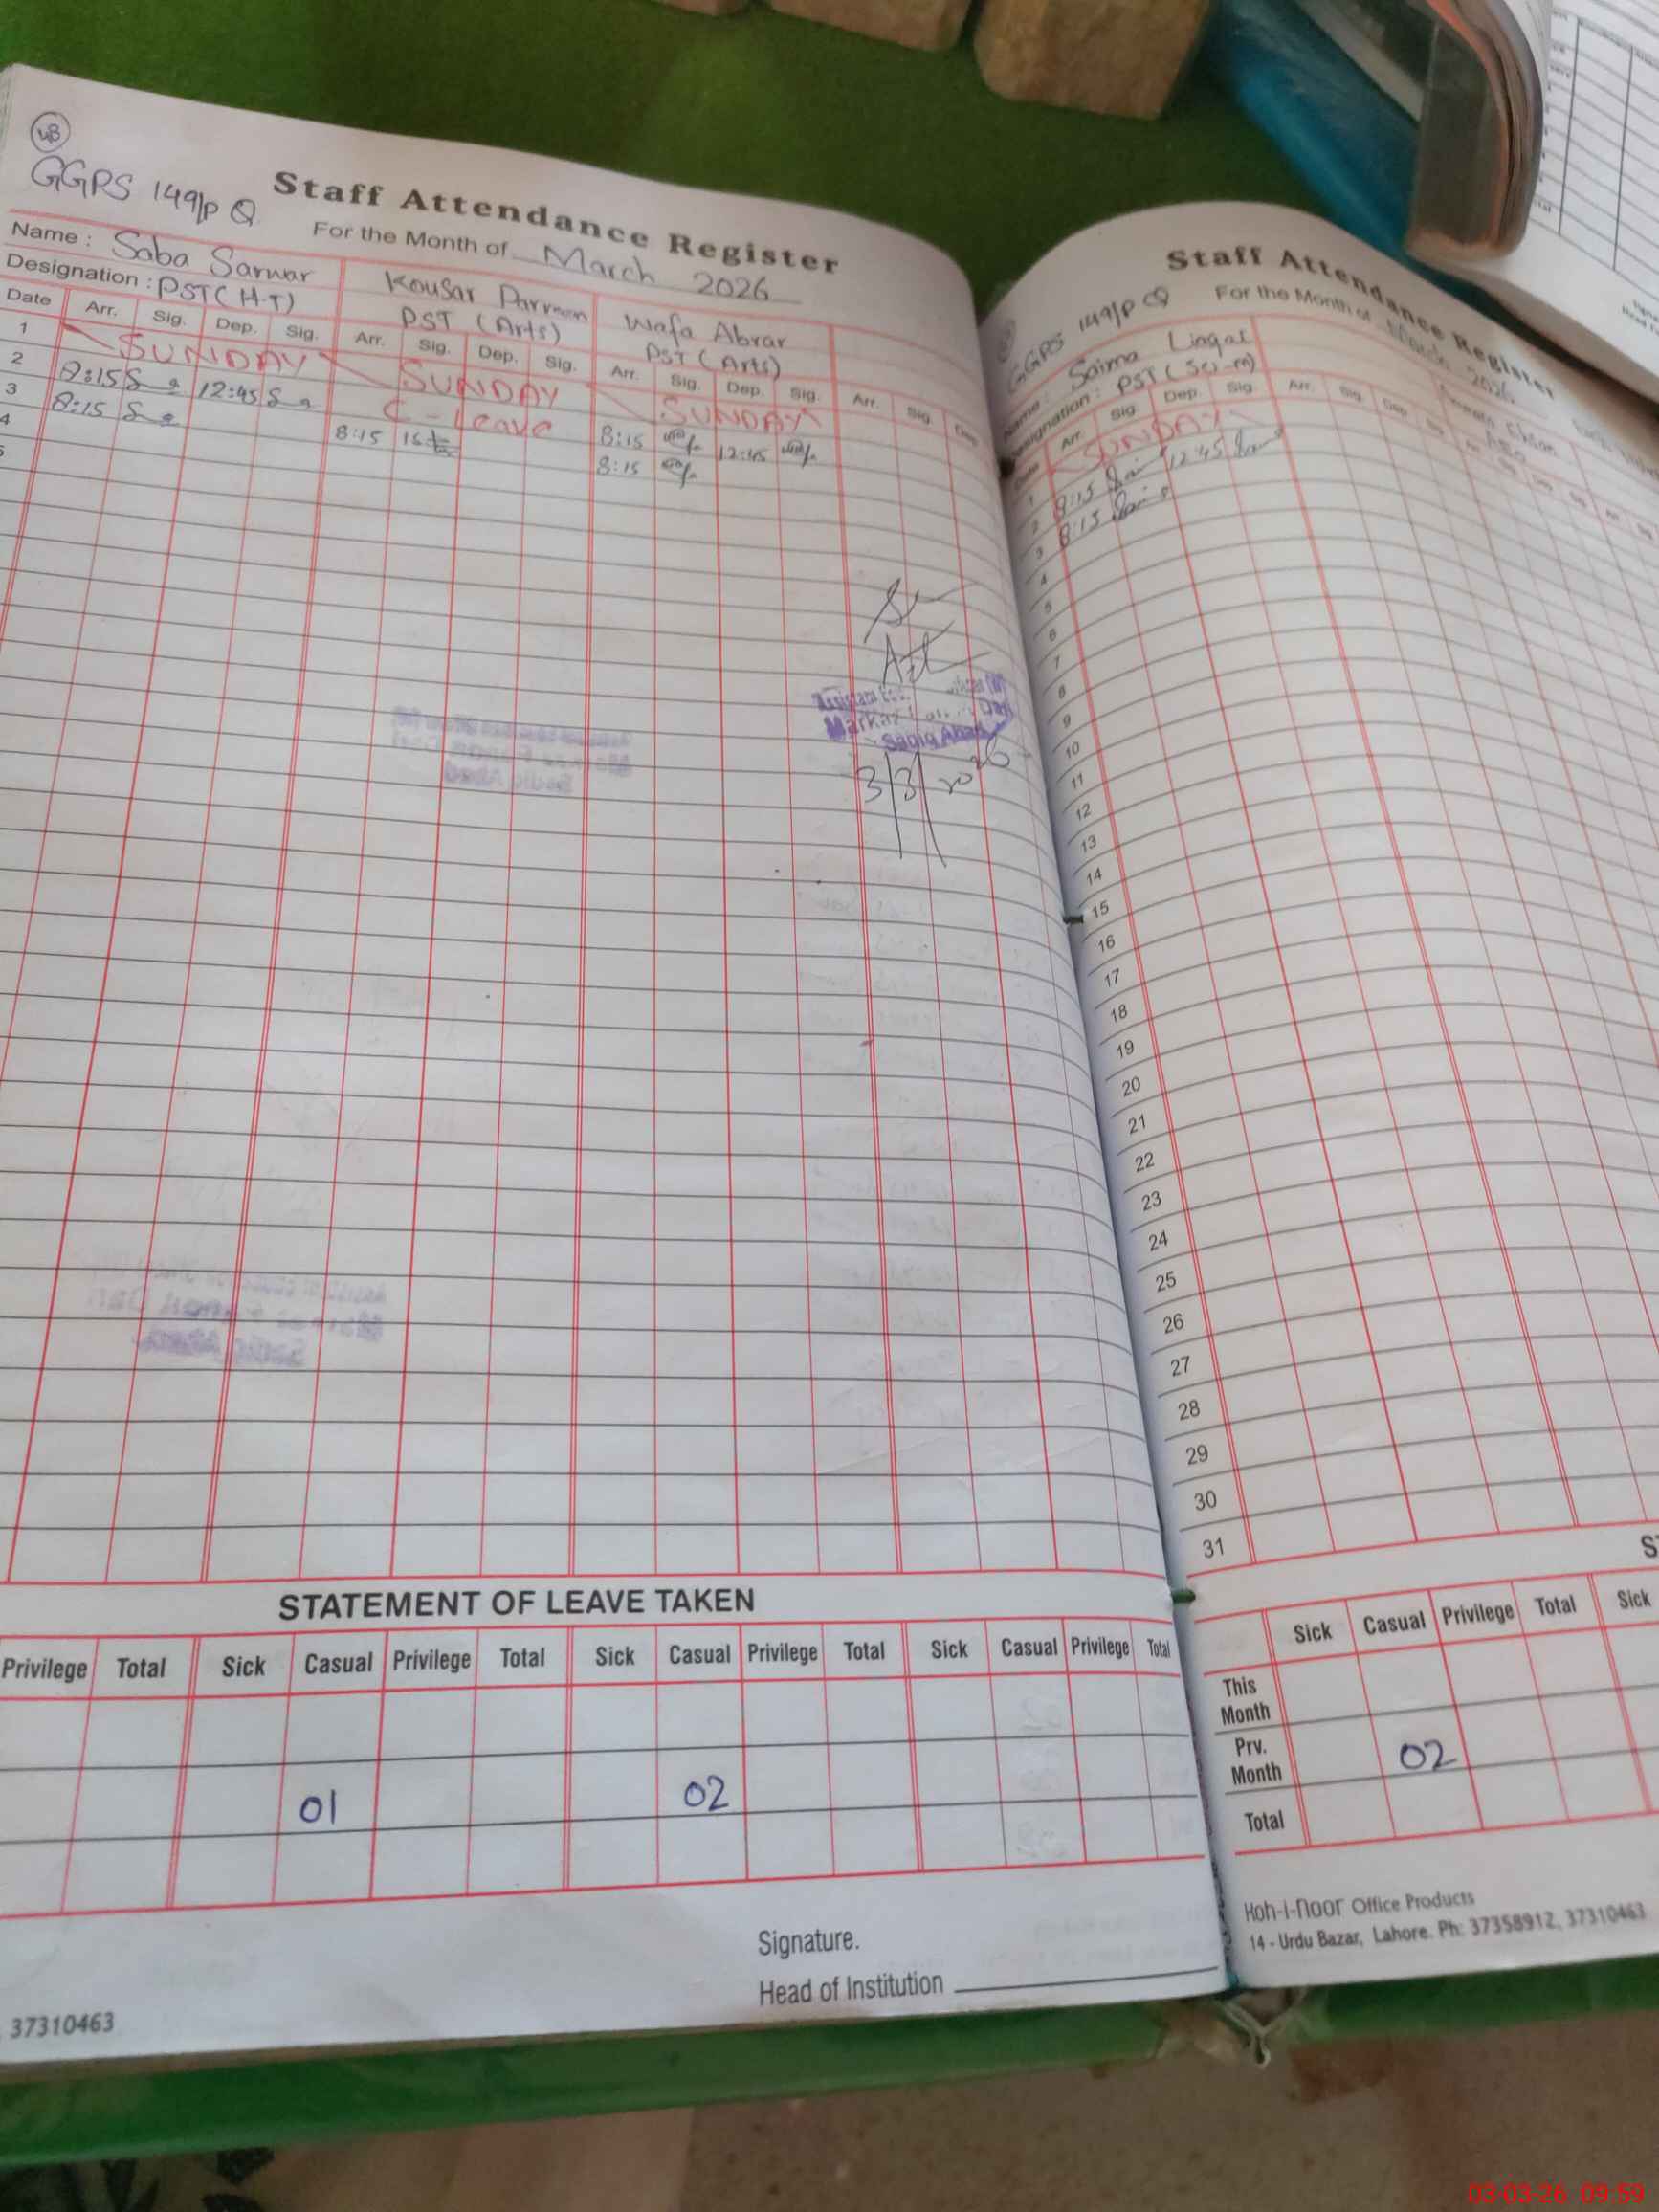 48
GGPS 149/P Q
Staff Attendance Register
For the Month of March 2026
Name : Saba Sarwar Kousar Parveen Wafa Abrar
Designation : PST (H-T) PST (Arts) PST (Arts)
Date Arr. Sig. Dep. Sig. Arr. Sig. Dep. Sig. Arr. Sig. Dep. Sig. Arr. Sig. Dep.
1 SUNDAY SUNDAY SUNDAY
2 8:15 12:45 C-Leave 8:15 12:45
3 8:15 8:15 8:15
4
5
Markaz
Sadiq Abad
3/3/2026
STATEMENT OF LEAVE TAKEN
Privilege Total Sick Casual Privilege Total Sick Casual Privilege Total Sick Casual Privilege Total
01 02
Signature.
Head of Institution
37310463
GGPS 149/P Q
Staff Attendance Register
For the Month of March 2026
Name : Saima Liaqat
Designation : PST (Sci-m)
Date Arr. Sig Dep. Sig Arr. Sig Dep.
1 SUNDAY
2 8:15 12:45
3 8:15
4
5
6
7
8
9
10
11
12
13
14
15
16
17
18
19
20
21
22
23
24
25
26
27
28
29
30
31
Sick Casual Privilege Total Sick
This Month
Prv. Month 02
Total
Koh-i-noor Office Products
14 - Urdu Bazar, Lahore. Ph: 37358912, 37310463
03-03-26 09:59